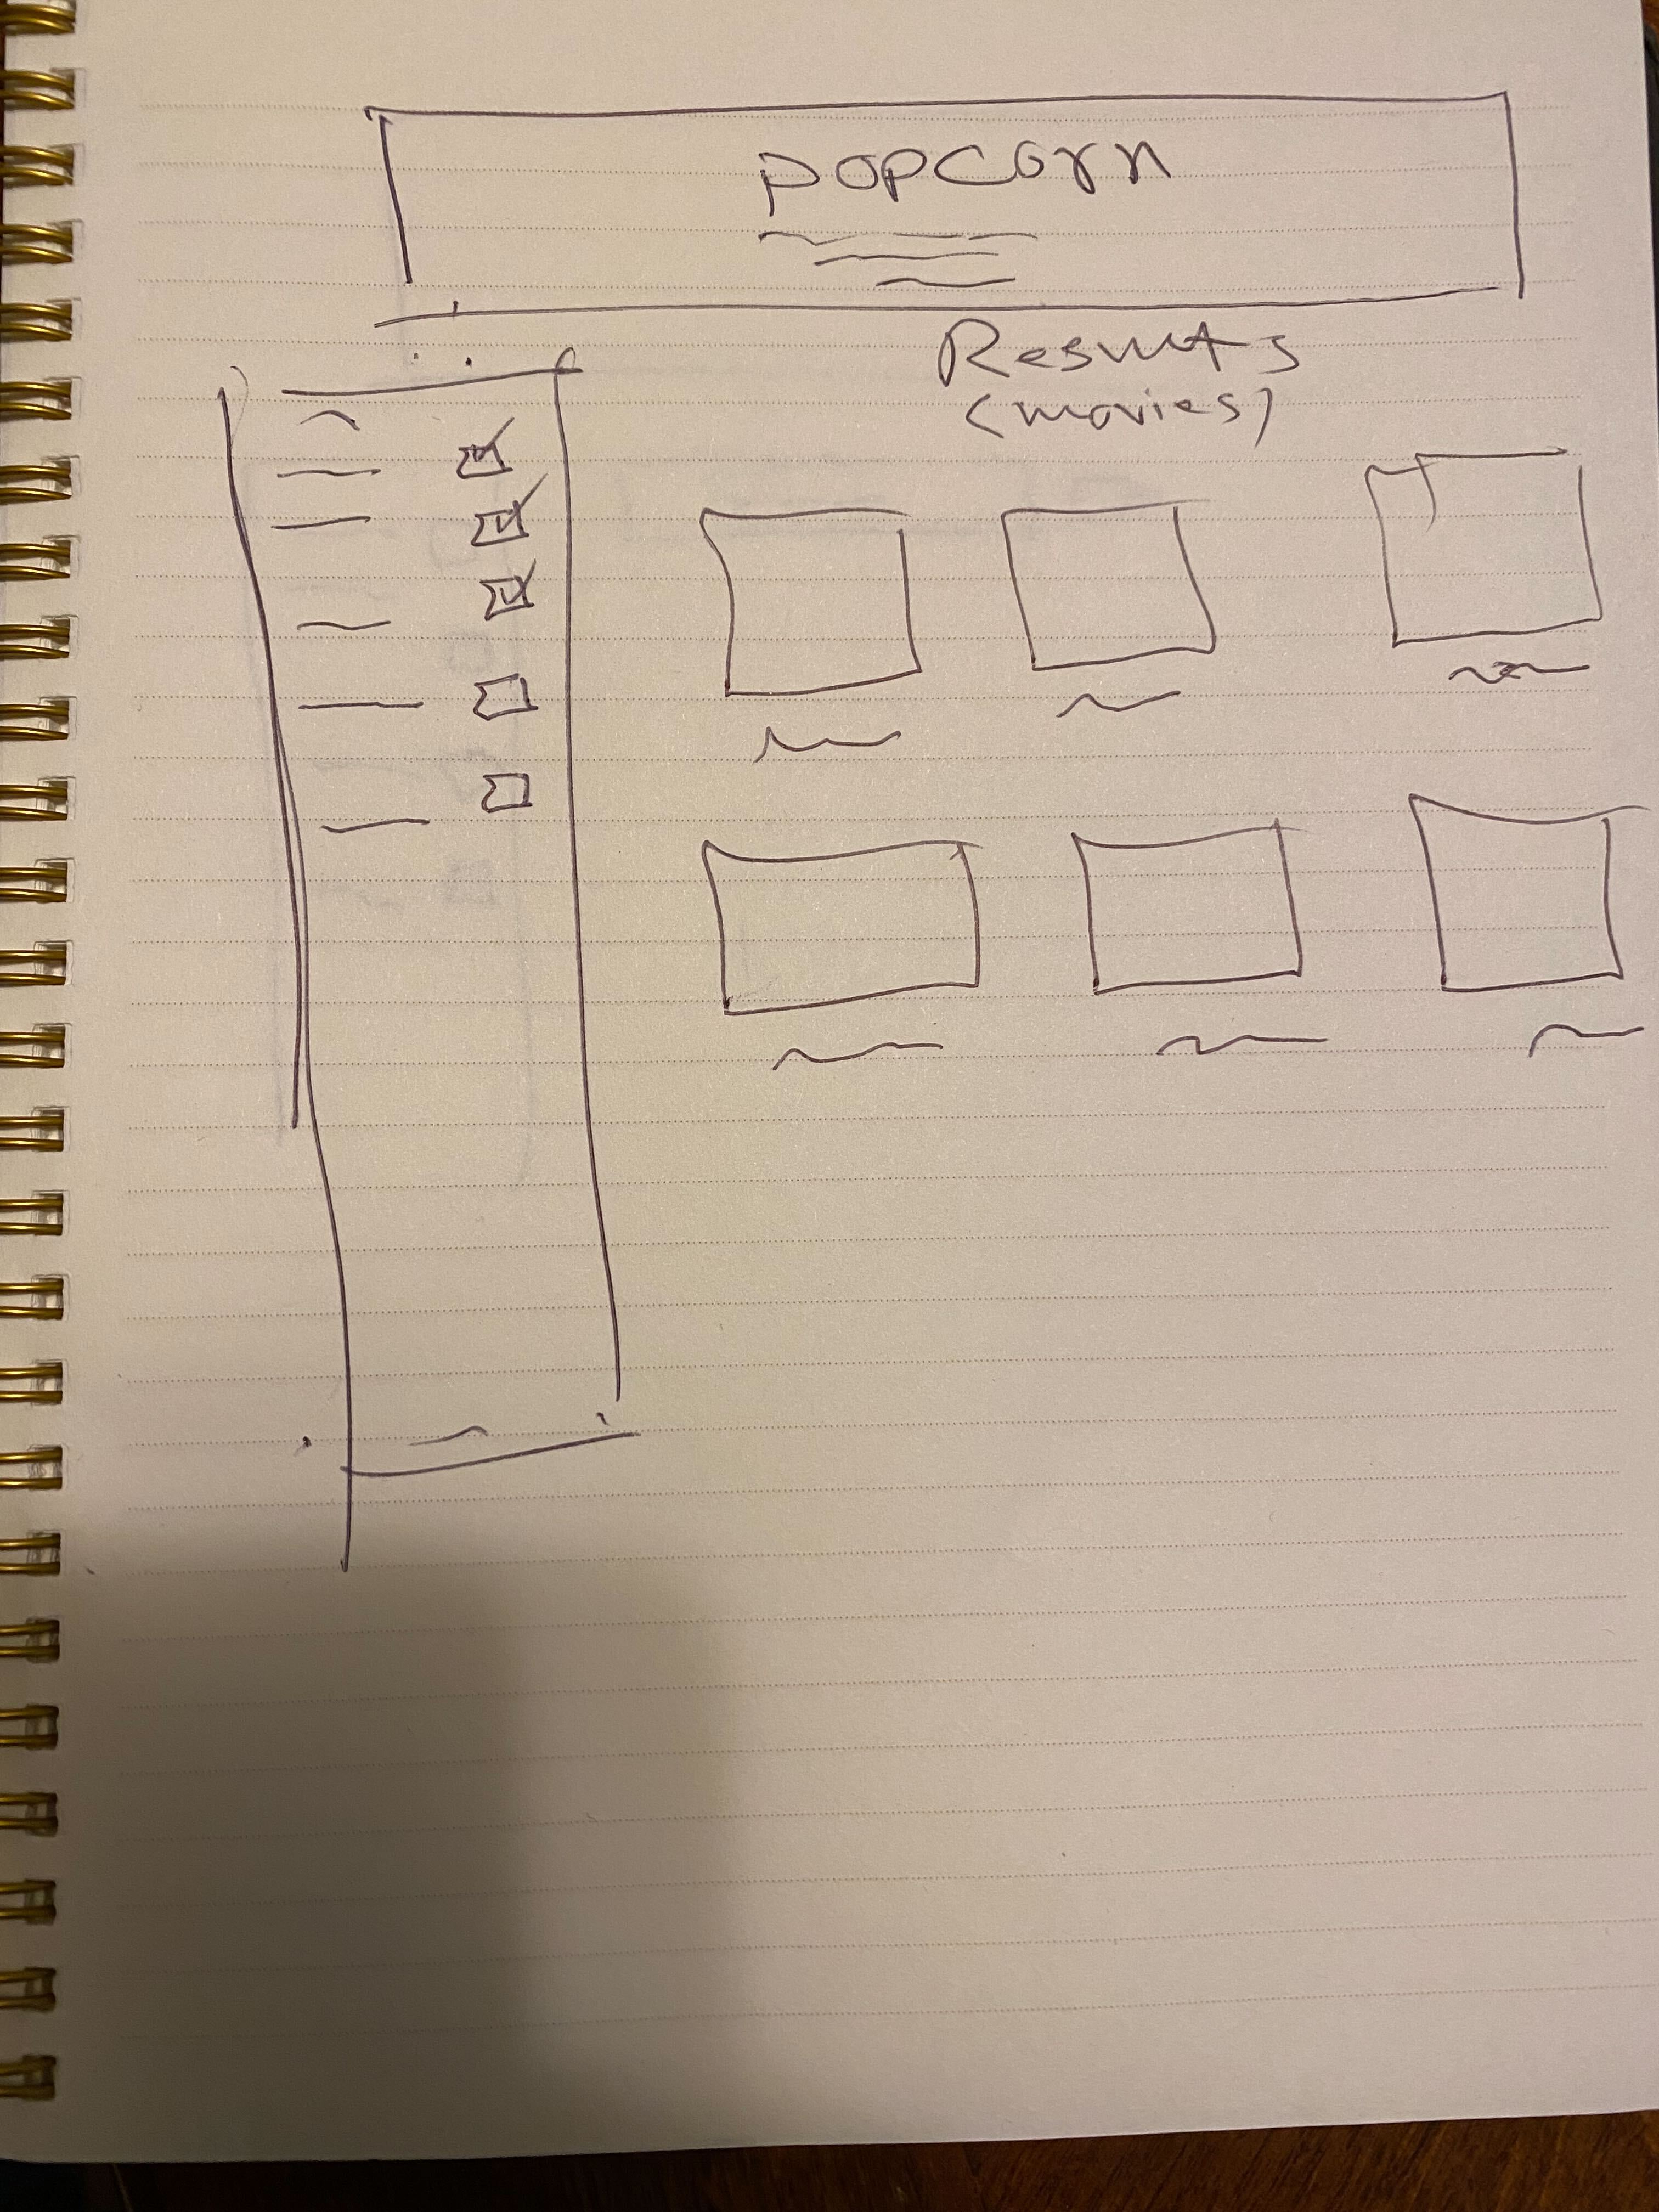 POPCORN
Results
(movies)